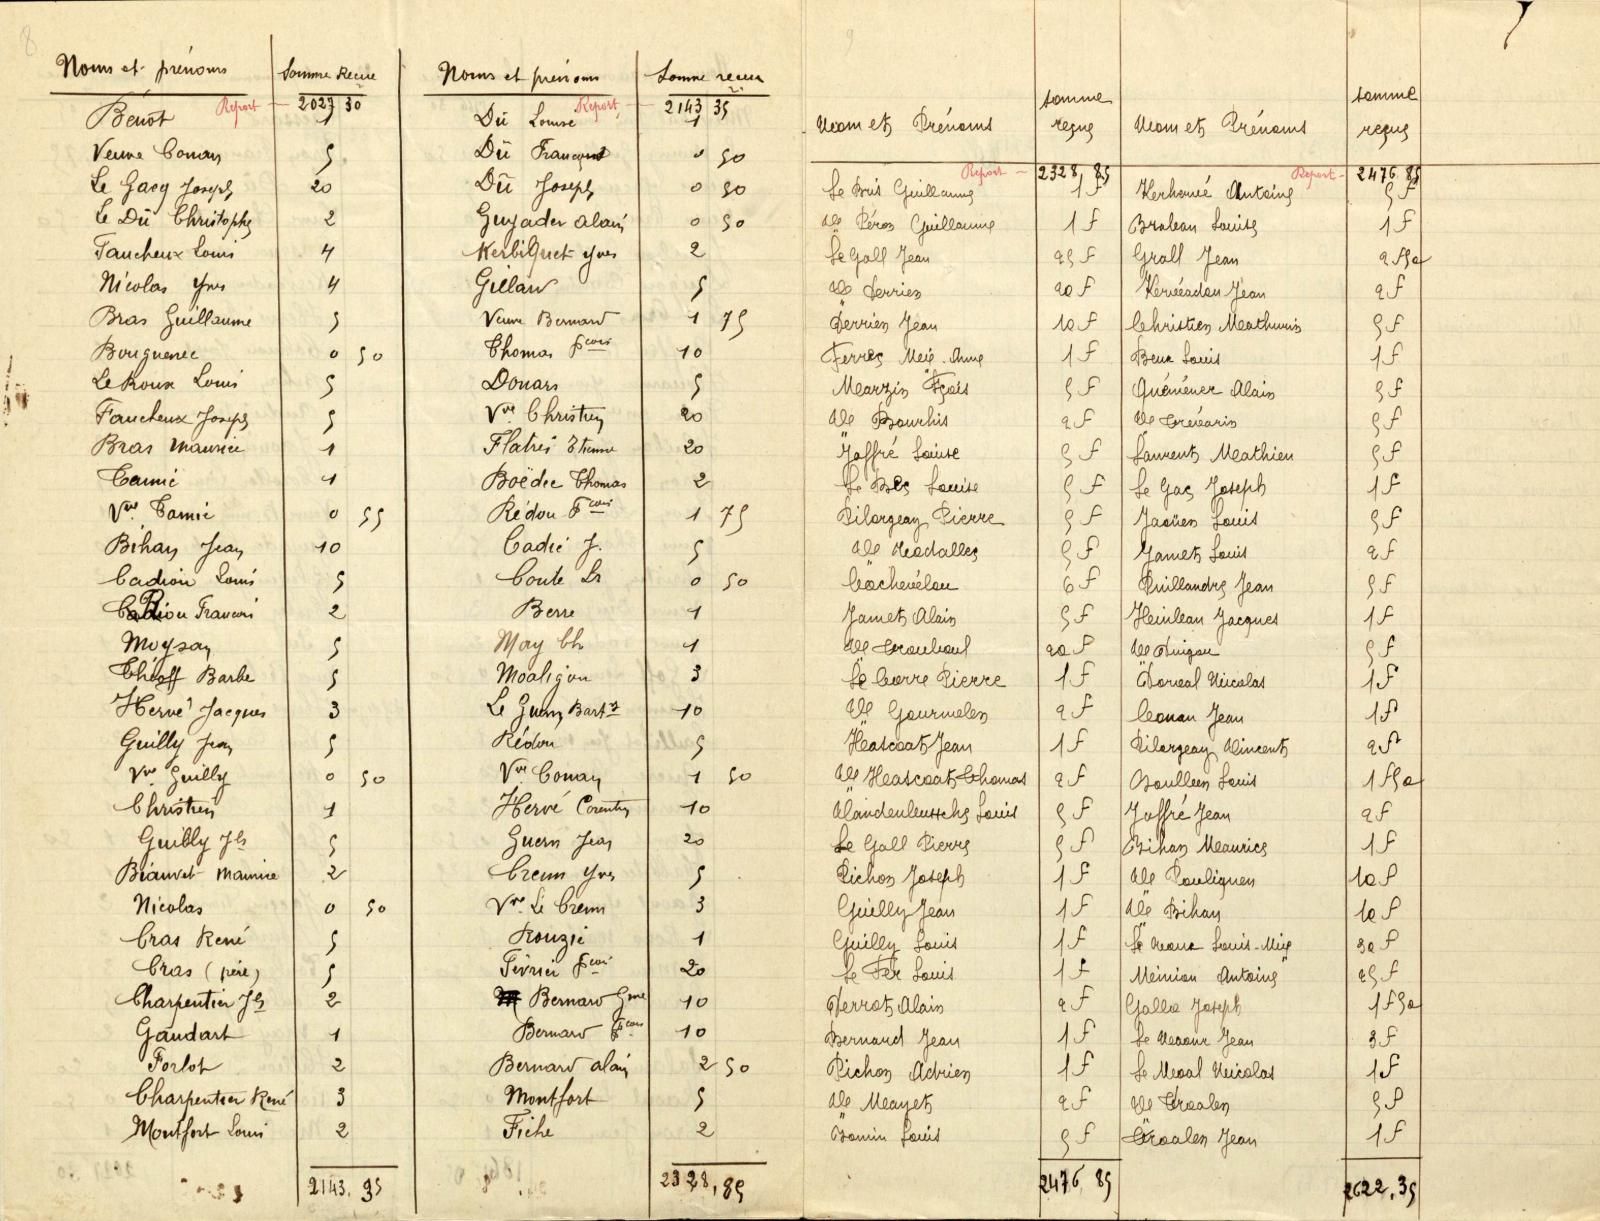 8
Noms et prénoms | Somme Recue
Report — 2027 30
Bénot 1
Veuve Conan 5
Le Gacq Joseph 20
Le Dû Christophe 2
Faucheux Louis 4
Nicolas Yves 4
Bras Guillaume 5
Bouguenec 0 50
Le Roux Louis 5
Faucheux Joseph 5
Bras Maurice 1
Camic 1
Vve Camic 0 55
Bihan Jean 10
Cadiou Louis 5
Cadiou Francois 2
Moysan 5
Barbe 5
Hervé Jacques 3
Guilly Jean 5
Vve Guilly 0 50
Christien 1
Guilly Jh 5
Maurice 2
Nicolas 0 50
Cras René 5
Cras (père) 5
Charpentier Jh 2
Gaudart 1
Forlot 2
Charpentier René 3
Montfort Louis 2
2143, 35
Noms et prénoms | Somme recue
Report — 2143 35
Dû Louise 1
Dû 0 50
Dû Joseph 0 50
Guyader Alain 0 50
Kerbiquet Yves 2
Gillard 5
Veuve Bernard 1 75
Thomas Fcois 10
Douars 5
Vve Christien 20
Flatrès Etienne 20
Boëdec Thomas 2
Rédou Fcois 1 75
Cadic J. 5
Conte Lse 0 50
Berre 1
May Ch 1
Moaligou 3
Le Guern 10
Rédou 5
Vve Conan 1 50
Hervé Corentin 10
Guern Jean 20
Crenn Yves 5
Vve Le Crenn 3
Rouzic 1
Février Fcois 20
Bernard Gme 10
Bernard Fcois 10
Bernard Alain 2 50
Montfort 5
Fiche 2
2328, 85
9
Nom et Prénoms | somme reçue
Report — 2328, 85
Le Bris Guillaume 1 F
Vve Péron Guillaume 1 F
Le Gall Jean 25 F
Vve Derrien 20 F
Derrien Jean 10 F
Ferrec Marie-Anne 1 F
Marzin Fçois 5 F
Vve Bourhis 2 F
Joffré Louise 5 F
Le Bec Louise 5 F
Pilorgeay Pierre 5 F
Vve Nédallec 5 F
Cochevélou 6 F
Jamet Alain 5 F
Vve 20 F
Le Corre Pierre 1 F
Vve Gourmelen 2 F
Hascoat Jean 1 F
Vve Hascoat Thomas 2 F
Louis 5 F
Le Gall Pierre 5 F
Pichon Joseph 1 F
Guilly Jean 1 F
Guilly Louis 1 F
Le Fer Louis 1 F
Perrot Alain 2 F
Bernard Jean 1 F
Pichon Adrien 1 F
Vve Mayet 2 F
Bomin Louis 5 F
2476, 85
Nom et Prénoms | somme reçue
Report — 2476 85
Kerhoué Antoine 5 F
Louise 1 F
Grall Jean 2 F 50
Jean 2 F
Christien Mathurin 5 F
Beux Louis 1 F
Quéméner Alain 5 F
Vve Trévarin 5 F
Laurent Mathieu 5 F
Le Gac Joseph 1 F
Jaouen Louis 5 F
Jamet Louis 2 F
Quillandre Jean 5 F
Jacques 1 F
Vve 5 F
Dorval Nicolas 1 F
Conan Jean 1 F
Pilorgeay Vincent 2 F
Boullen Louis 1 F 50
Joffré Jean 2 F
Bihan Maurice 1 F
Vve Pouliquen 10 F
Vve Bihan 10 F
Le Roux Louis-Marie 30 F
Antoine 25 F
Gallo Joseph 1 F 50
Le Jean 3 F
Le Moal Nicolas 1 F
Vve Troalen 5 F
Troalen Jean 1 F
2622, 35